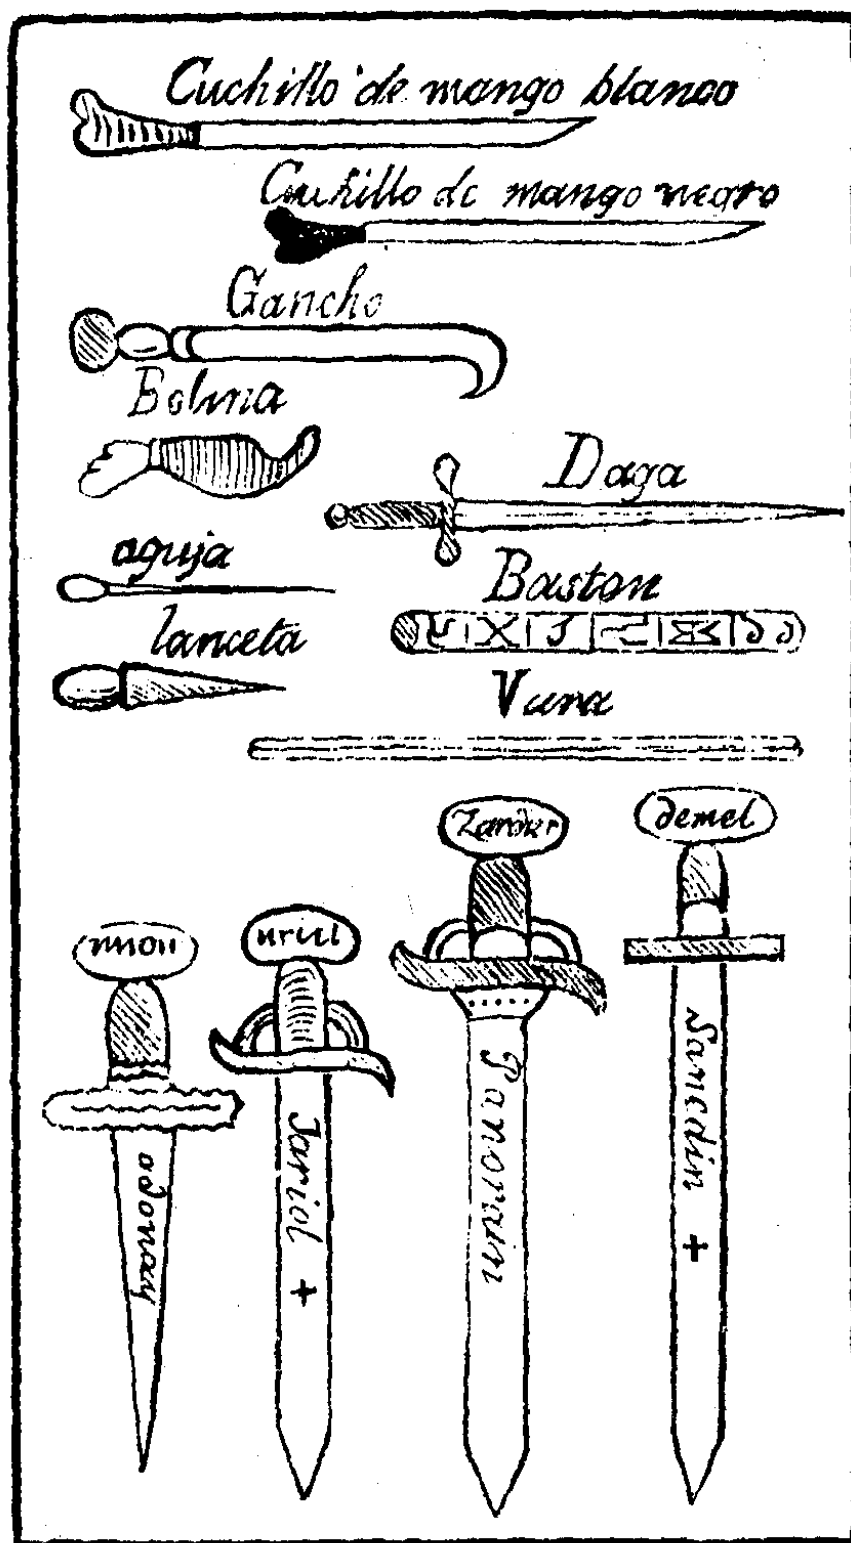 Cuchillo de mango blanco
Cuchillo de mango negro
Gancho
Bolina
Daga
aguja
Baston
lanceta
Vara
demel
adonay
Jariol +
Panoraim
Sanedin +